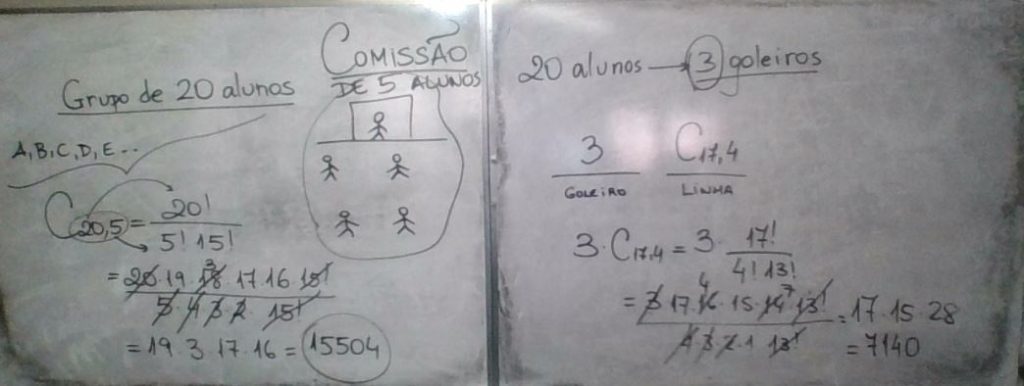 Grupo de 20 alunos
COMISSÃO
DE 5 ALUNOS
A, B, C, D, E...
C20,5 = 20!
5! 15!
= 20 · 19 · 18 3 · 17 · 16 · 15!
5 · 4 · 3 · 2 · 15!
= 19 · 3 · 17 · 16 = 15504
20 alunos → 3 goleiros
3 C17,4
GOLEIRO LINHA
3 · C17,4 = 3 · 17!
4! 13!
= 3 · 17 · 16 4 · 15 · 14 7 · 13! = 17 · 15 · 28
4 · 3 · 2 · 1 · 13!
= 7140